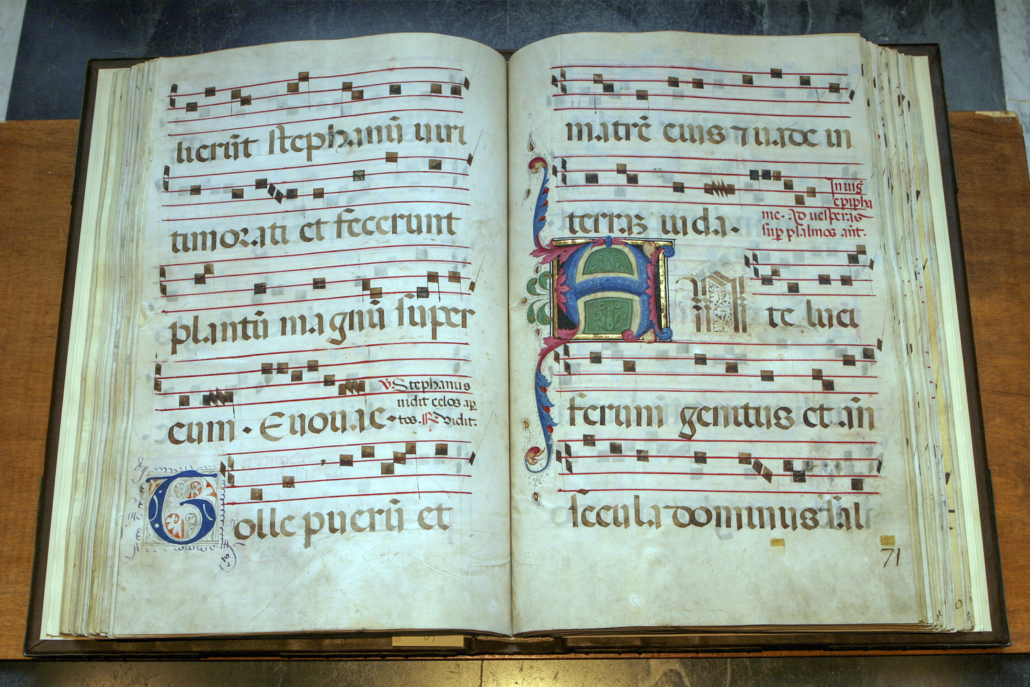 lierūt stephanū uiri
timorati et fecerunt
plantū magnū super
eum · Euouae · ℣. Stephanus
uidit celos ap
tos. ℟. Vidit.
Tolle puerū et
matrē eius ⁊ uade in
terrā iuda · In uig
epipha
nie · Ad uesperas
sup psalmos ant.
An te luci
ferum genitus et an
secula dominus sal
71